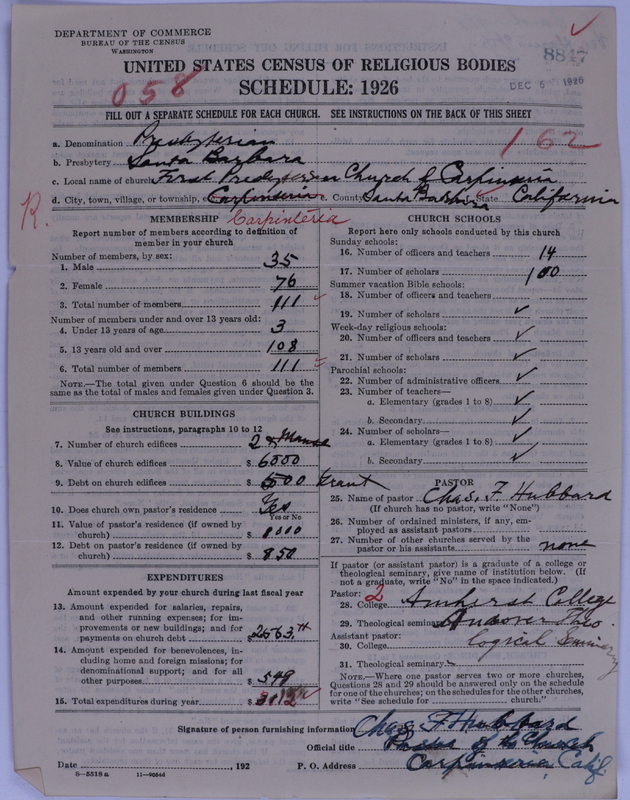 DEPARTMENT OF COMMERCE
BUREAU OF THE CENSUS
WASHINGTON
8847
UNITED STATES CENSUS OF RELIGIOUS BODIES
DEC 6 1926
SCHEDULE: 1926
058
FILL OUT A SEPARATE SCHEDULE FOR EACH CHURCH. SEE INSTRUCTIONS ON THE BACK OF THIS SHEET
162
a. Denomination Presbyterian
b. Presbytery Santa Barbara
c. Local name of church First Presbyterian Church of Carpinteria
d. City, town, village, or township, Carpinteria e. County Santa Barbara State California
R.
MEMBERSHIP Carpinteria
Report number of members according to definition of
member in your church
Number of members, by sex:
1. Male 35
2. Female 76
3. Total number of members 111
Number of members under and over 13 years old:
4. Under 13 years of age 3
5. 13 years old and over 108
6. Total number of members 111
NOTE.—The total given under Question 6 should be
same as the total of males and females given under Question 3.
CHURCH BUILDINGS
See instructions, paragraphs 10 to 12
7. Number of church edifices 2 & Manse
8. Value of church edifices $ 6000
9. Debt on church edifices $ 500 Grant
10. Does church own pastor's residence Yes
Yes or No
11. Value of pastor's residence (if owned by
church) $ 1000
12. Debt on pastor's residence (if owned by
church) $ 850
EXPENDITURES
Amount expended by your church during last fiscal year
13. Amount expended for salaries, repairs,
and other running expenses; for im-
provements or new buildings; and for
payments on church debt $ 2563
14. Amount expended for benevolences, in-
cluding home and foreign missions; for
denominational support; and for all
other purposes $ 549
15. Total expenditures during year $ 3112
CHURCH SCHOOLS
Report here only schools conducted by this church
Sunday schools:
16. Number of officers and teachers 14
17. Number of scholars 100
Summer vacation Bible schools:
18. Number of officers and teachers
19. Number of scholars
Week-day religious schools:
20. Number of officers and teachers
21. Number of scholars
Parochial schools:
22. Number of administrative officers
23. Number of teachers—
a. Elementary (grades 1 to 8)
b. Secondary
24. Number of scholars—
a. Elementary (grades 1 to 8)
b. Secondary
PASTOR
25. Name of pastor Chas. F. Hubbard
(If church has no pastor, write "None")
26. Number of ordained ministers, if any, em-
ployed as assistant pastors
27. Number of other churches served by the
pastor or his assistants none
If pastor (or assistant pastor) is a graduate of a college or
theological seminary, give name of institution below. (If
not a graduate, write "No" in the space indicated.)
Pastor: 2
28. College Amherst College
29. Theological seminary Andover Theo
Assistant pastor: logical Seminary
30. College
31. Theological seminary
NOTE.—Where one pastor serves two or more churches,
Questions 28 and 29 should be answered only on the schedule
for one of the churches; on the schedules for the other churches,
write "See schedule for church."
Signature of person furnishing information Chas. F. Hubbard
Official title Pastor of the Church
Date , 192 P. O. Address Carpinteria Calif.
8—5518a 11—9054d